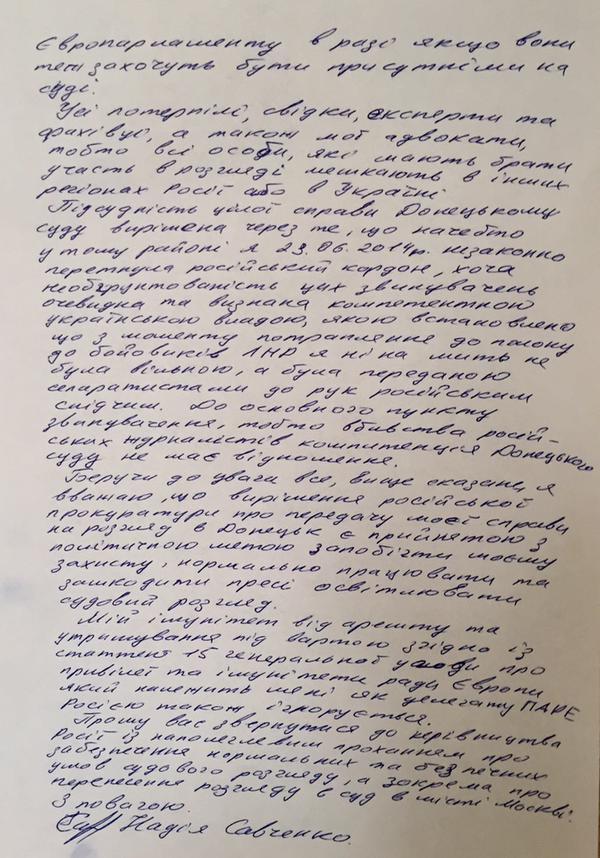 Європарламенту в разі якщо вони
теж захочуть бути присутніми на
суді.
Усі потерпілі, свідки, експерти та
фахівці, а також мої адвокати,
тобто всі особи, які мають брати
участь в розгляді мешкають в інших
регіонах Росії або в Україні
Підсудність цілої справи Донецькому
суду вирішена через те, що начебто
у тому районі я 23.06.2014р. незаконно
перетнула російський кордон, хоча
необґрунтованість цих звинувачень
очевидна та визнана компетентною
українською владою, якою встановлено
що з моменту потраплення до полону
до бойовиків ЛНР я ні на мить не
була вільною, а була переданою
сепаратистами до рук російським
слідчим. До основного пункту
звинувачення, тобто вбивства росій-
ських журналістів компитенція Донецького
суду не має відношення.
Беручи до уваги все, вище сказане, я
вважаю, що вирішення російської
прокуратури про передачу моєї справи
на розгляд в Донецьк є прийнятою з
політичною метою запобігти моєму
захисту, нормально працювати та
зашкодити пресі освітлювати
судовий розгляд.
Мій імунітет від арешту та
утримування під вартою згідно із
статтею 15 генеральної угоди про
привілеї та імунітети ради Європи
який належить мені як делегату ПАРЕ
Росією також ігнорується.
Прошу вас звернутися до керівництва
Росії із наполегливим проханням про
забезпечення нормальних та безпечних
умов судового розгляду, а зокрема про
перенесення розгляду в суд в місті Москві.
З повагою.
Надія Савченко.